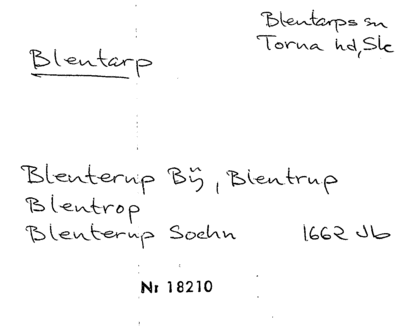 Blentarps sn
Torna hd, Sk
Blentarp
Blenterup Bÿ, Blentrup
Blentrop
Blenterup Sochn 1662 Jb
Nr 18210